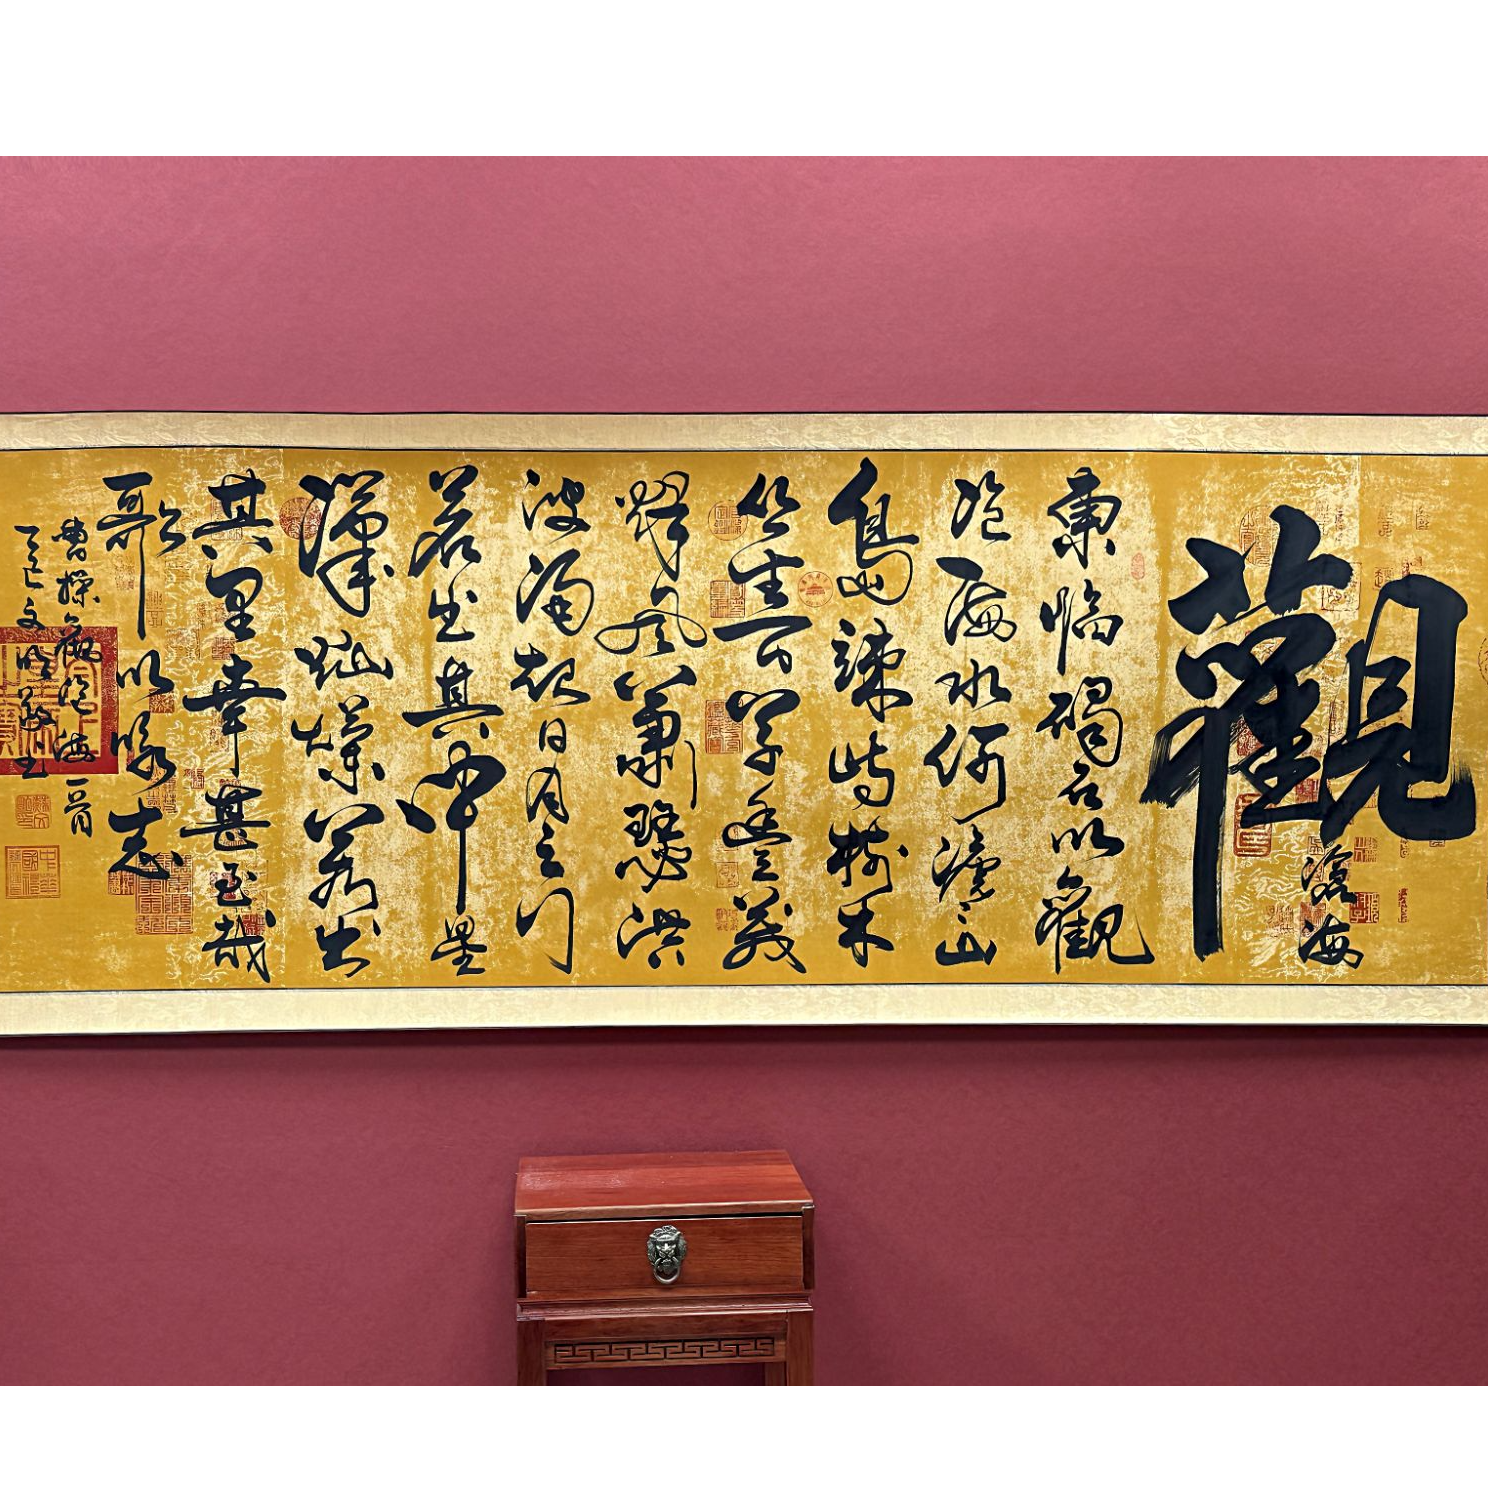 觀
滄海
東臨碣石以觀
滄海水何澹〻山
島竦峙樹木
丛生百草豐茂
秋風蕭瑟洪
波涌起日月之行
若出其中星
漢灿爛若出
其里幸甚至哉
歌以詠志
曹操觀滄海一首
乙巳文曉敬书